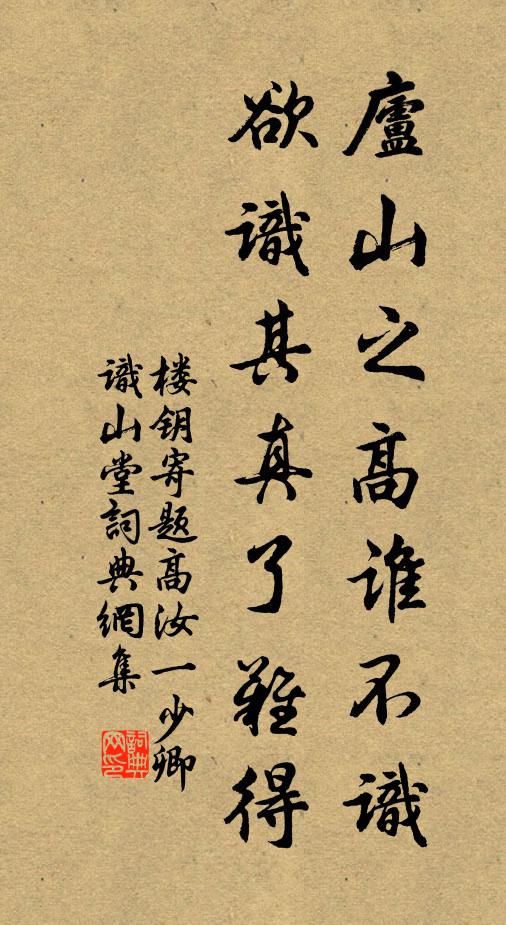 廬山之高誰不識
欲識其真了難得
楼钥寄题高汝一少卿
識山堂詞典網集
詞典网印